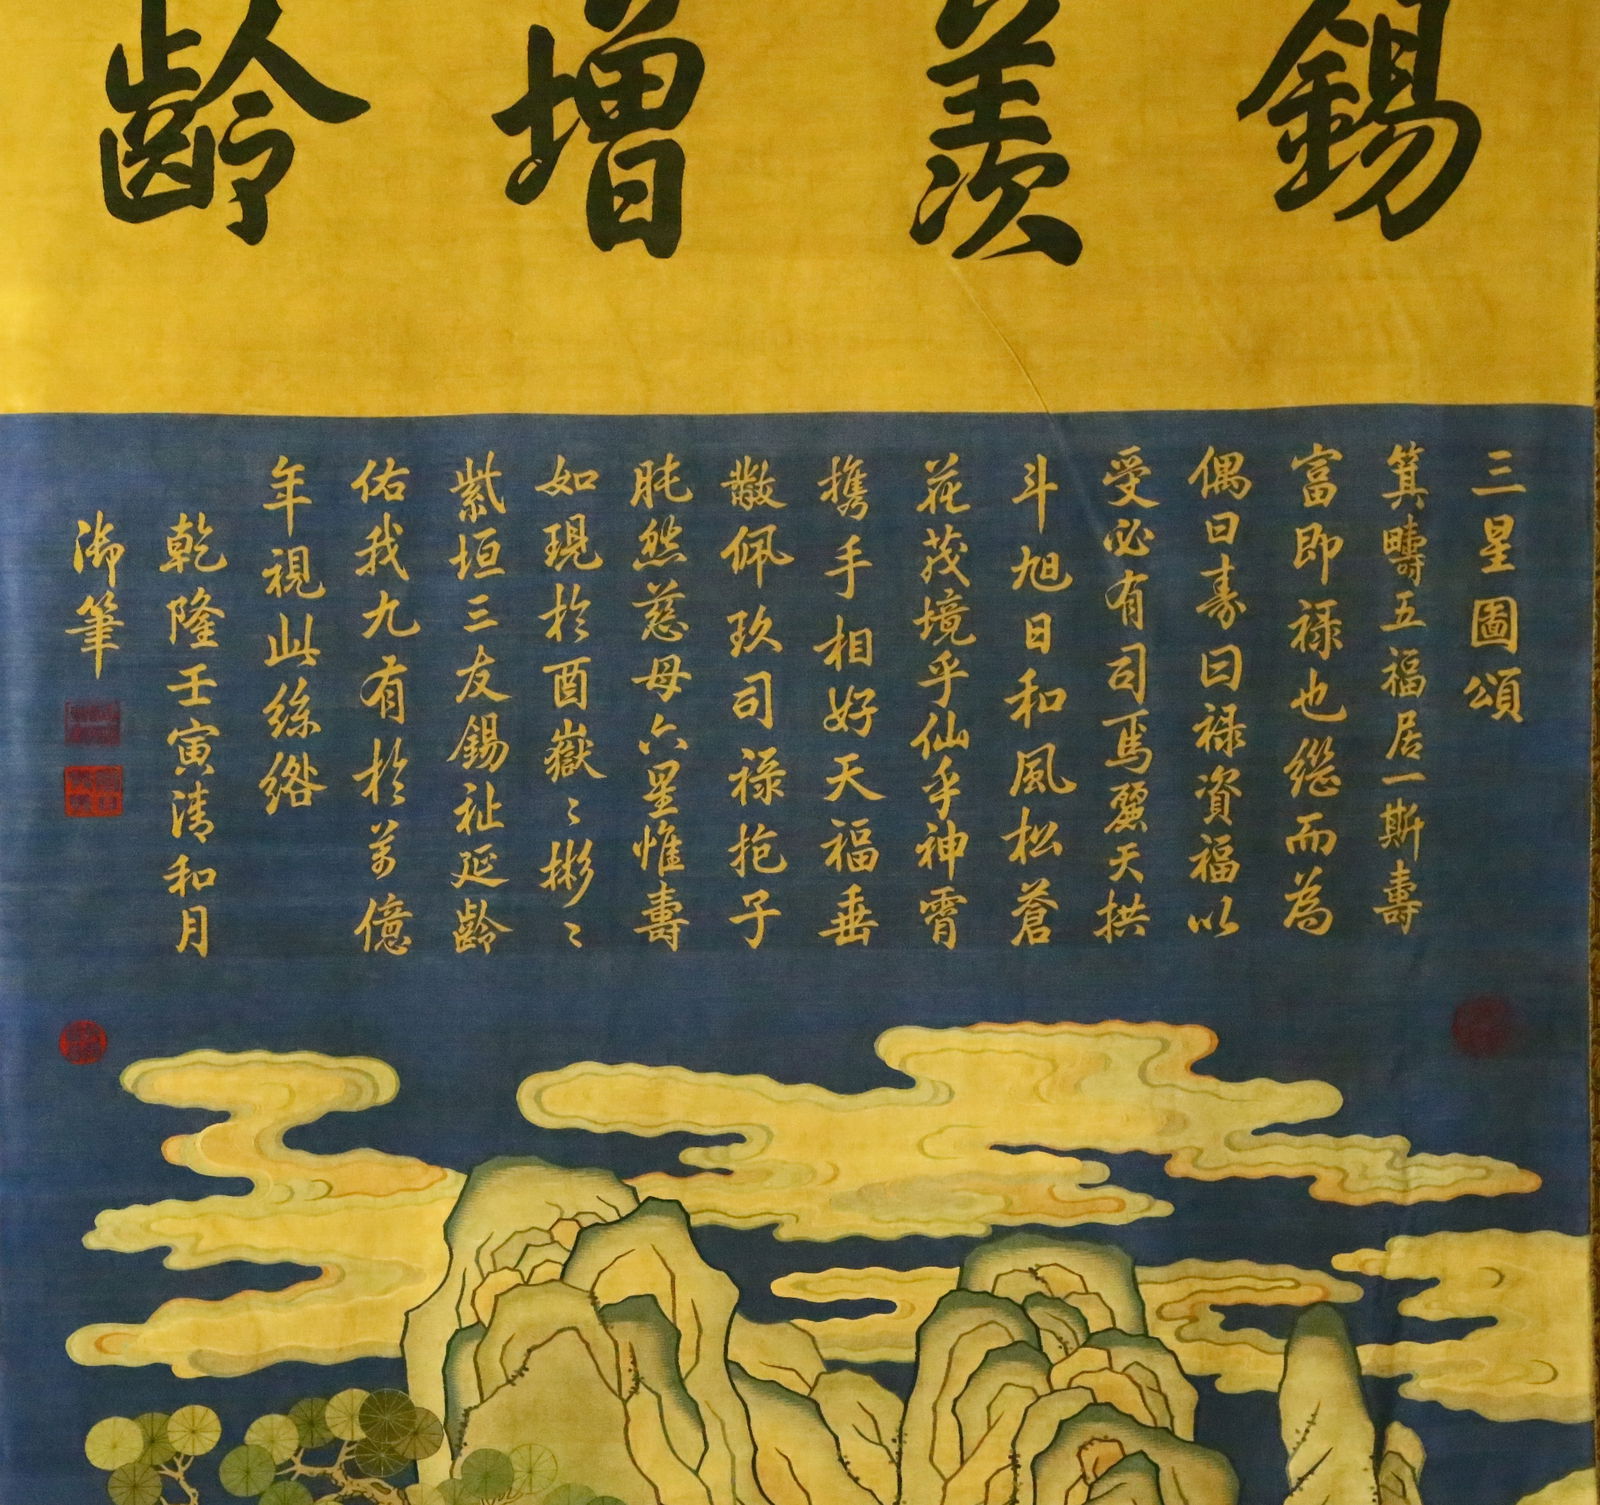 錫羨增齡
三星圖頌
箕疇五福居一斯壽
富即祿也繼而為
偶曰壽曰祿資福以
受必有司焉麗天拱
斗旭日和風松蒼
花茂境乎仙乎神霄
攜手相好天福垂
黻佩玖司祿抱子
肫然慈母六星惟壽
如現於酉嶽〻彬〻
紫垣三友錫祉延齡
佑我九有於萬億
年視此絲綹
乾隆壬寅清和月
御筆